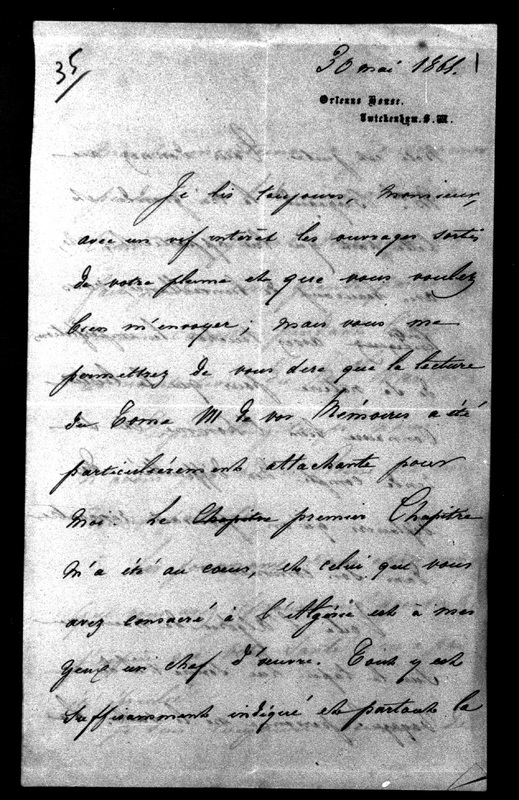 35
30 mai 1861. 1
Orleans House.
Twickenham. S.W.
Je lis toujours, Monsieur,
avec un vif intérêt les ouvrages sortis
de votre plume et que vous voulez
bien m'envoyer; mais vous me
permettrez de vous dire que la lecture
du Tome III de vos Mémoires a été
particulièrement attachante pour
moi. Le Chapitre premier Chapitre
m'a été au cœur, et celui que vous
avez consacré à l'Algérie est à mes
yeux un chef d'œuvre. Tout y est
suffisamment indiqué et partout la